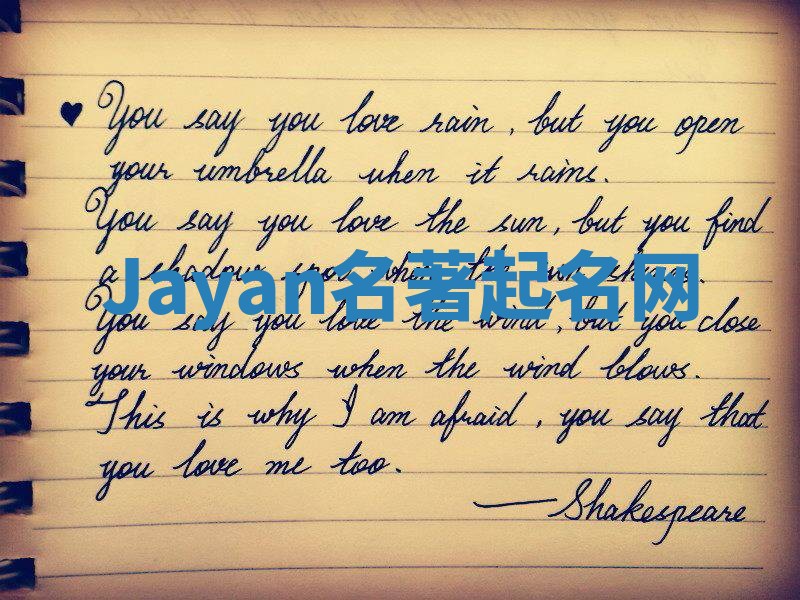 ♥ You say you love rain, but you open
your umbrella when it rains.
You say you love the sun, but you find
a shadow spot when the sun shines.
Jayan名著起名网
You say you love the wind, but you close
your windows when the wind blows.
This is why I am afraid, you say that
you love me too.
—Shakespeare